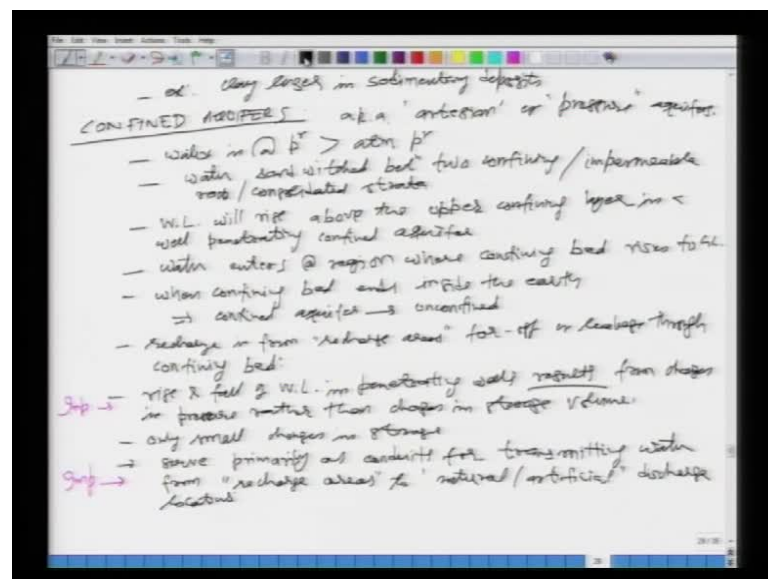 File Edit View Insert Actions Tools Help
- ex. clay lenses in sedimentary deposits
CONFINED AQUIFERS a.k.a 'artesian' or "pressure" aquifers.
- water is @ pr > atm pr
- water sandwitched betn two confining / impermeable
rock / consolidated strata
- W.L. will rise above the upper confining layer in a
well penetrating confined aquifer
- water enters @ region where confining bed rises to GL.
- when confining bed ends inside the earth
⇒ confined aquifer → unconfined
- recharge is from "recharge areas" far-off or leakage through
confining bed.
Imp → - rise & fall of W.L. in penetrating wells results from changes
in pressure rather than changes in storage volume.
- only small changes in storage
Imp → → serve primarily as conduits for transmitting water
from "recharge areas" to "natural / artificial" discharge
locations
29/30
29